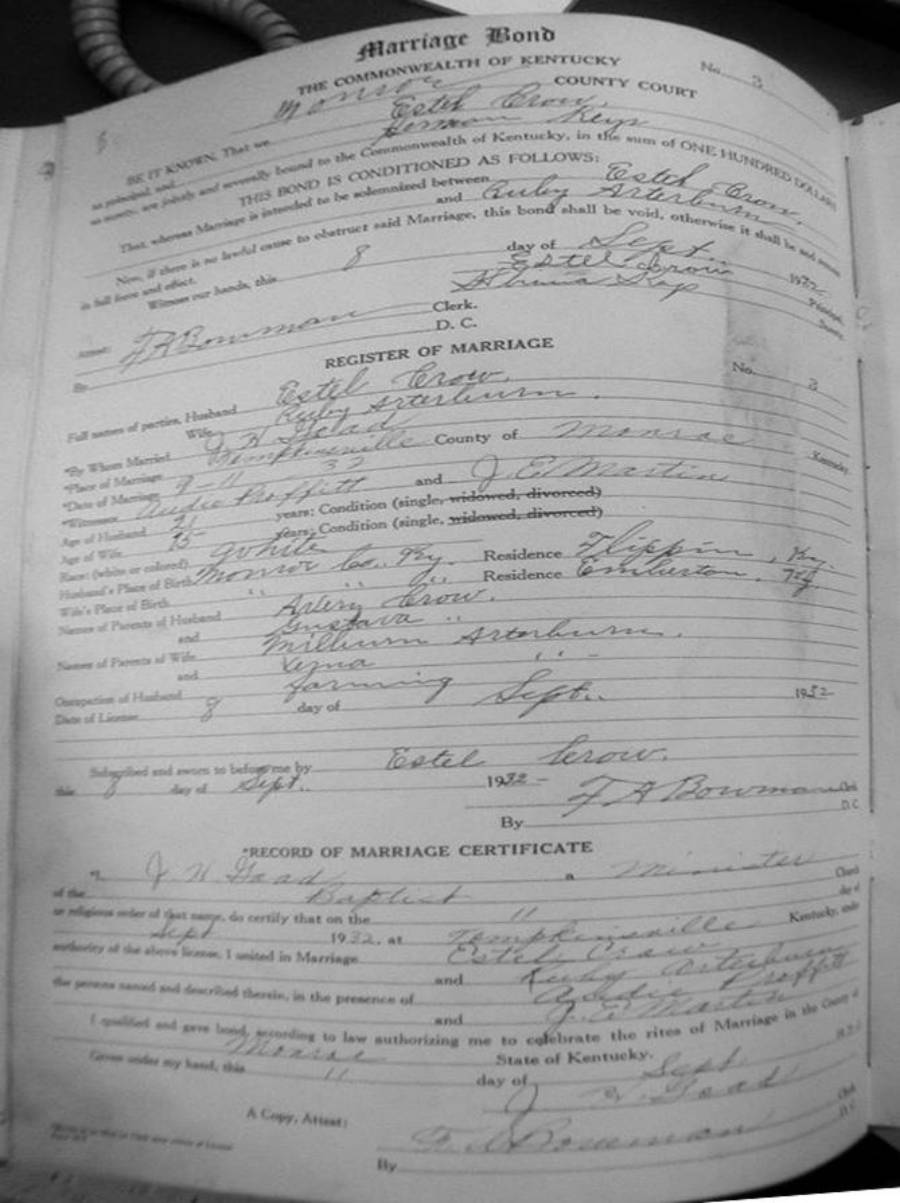 Marriage Bond
No. 3
THE COMMONWEALTH OF KENTUCKY
Monroe COUNTY COURT
BE IT KNOWN, That we Estel Crow,
as principal, and Herman Keys
as surety, are jointly and severally bound to the Commonwealth of Kentucky, in the sum of ONE HUNDRED DOLLARS
THIS BOND IS CONDITIONED AS FOLLOWS:
That, whereas Marriage is intended to be solemnized between Estel Crow,
and Ruby Arterburn
Now, if there is no lawful cause to obstruct said Marriage, this bond shall be void, otherwise it shall be and remain
in full force and effect.
Witness our hands, this 8 day of Sept. 1932
Estel Crow Principal.
Surety.
Attest: F A Bowman Clerk.
By D. C.
REGISTER OF MARRIAGE
No. 3
Full names of parties, Husband Estel Crow.
Wife Ruby Arterburn.
*By Whom Married J W Goad
*Place of Marriage Tompkinsville County of Monroe Kentucky
*Date of Marriage 9-11 32
*Witnesses Audie Proffitt and J. E. Martin
Age of Husband 21 years; Condition (single, widowed, divorced)
Age of Wife 15 years; Condition (single, widowed, divorced)
Race: (white or colored) White
Husband's Place of Birth Monroe Co. Ky. Residence Flippin, Ky.
Wife's Place of Birth " " " Residence Emberton, Ky
Names of Parents of Husband Avery Crow.
and Gustava "
Names of Parents of Wife Milburn Arterburn.
and " -
Occupation of Husband farming
Date of License 8 day of Sept. 1932
Subscribed and sworn to before me by Estel Crow.
this 8 day of Sept. 1932 -
F A Bowman Clerk
By D. C.
*RECORD OF MARRIAGE CERTIFICATE
*I, J. W. Goad a Minister
of the Baptist Church
or religious order of that name, do certify that on the 11 day of
Sept 1932, at Tompkinsville Kentucky, under
authority of the above license, I united in Marriage Estel Crow
and Ruby Arterburn
the persons named and described therein, in the presence of Audie Proffitt
and J. E. Martin
I qualified and gave bond, according to law authorizing me to celebrate the rites of Marriage in the County of
Monroe State of Kentucky.
Given under my hand, this 11 day of Sept
J W. Goad
A Copy, Attest: Clerk
F. A Bowman D. C.
By